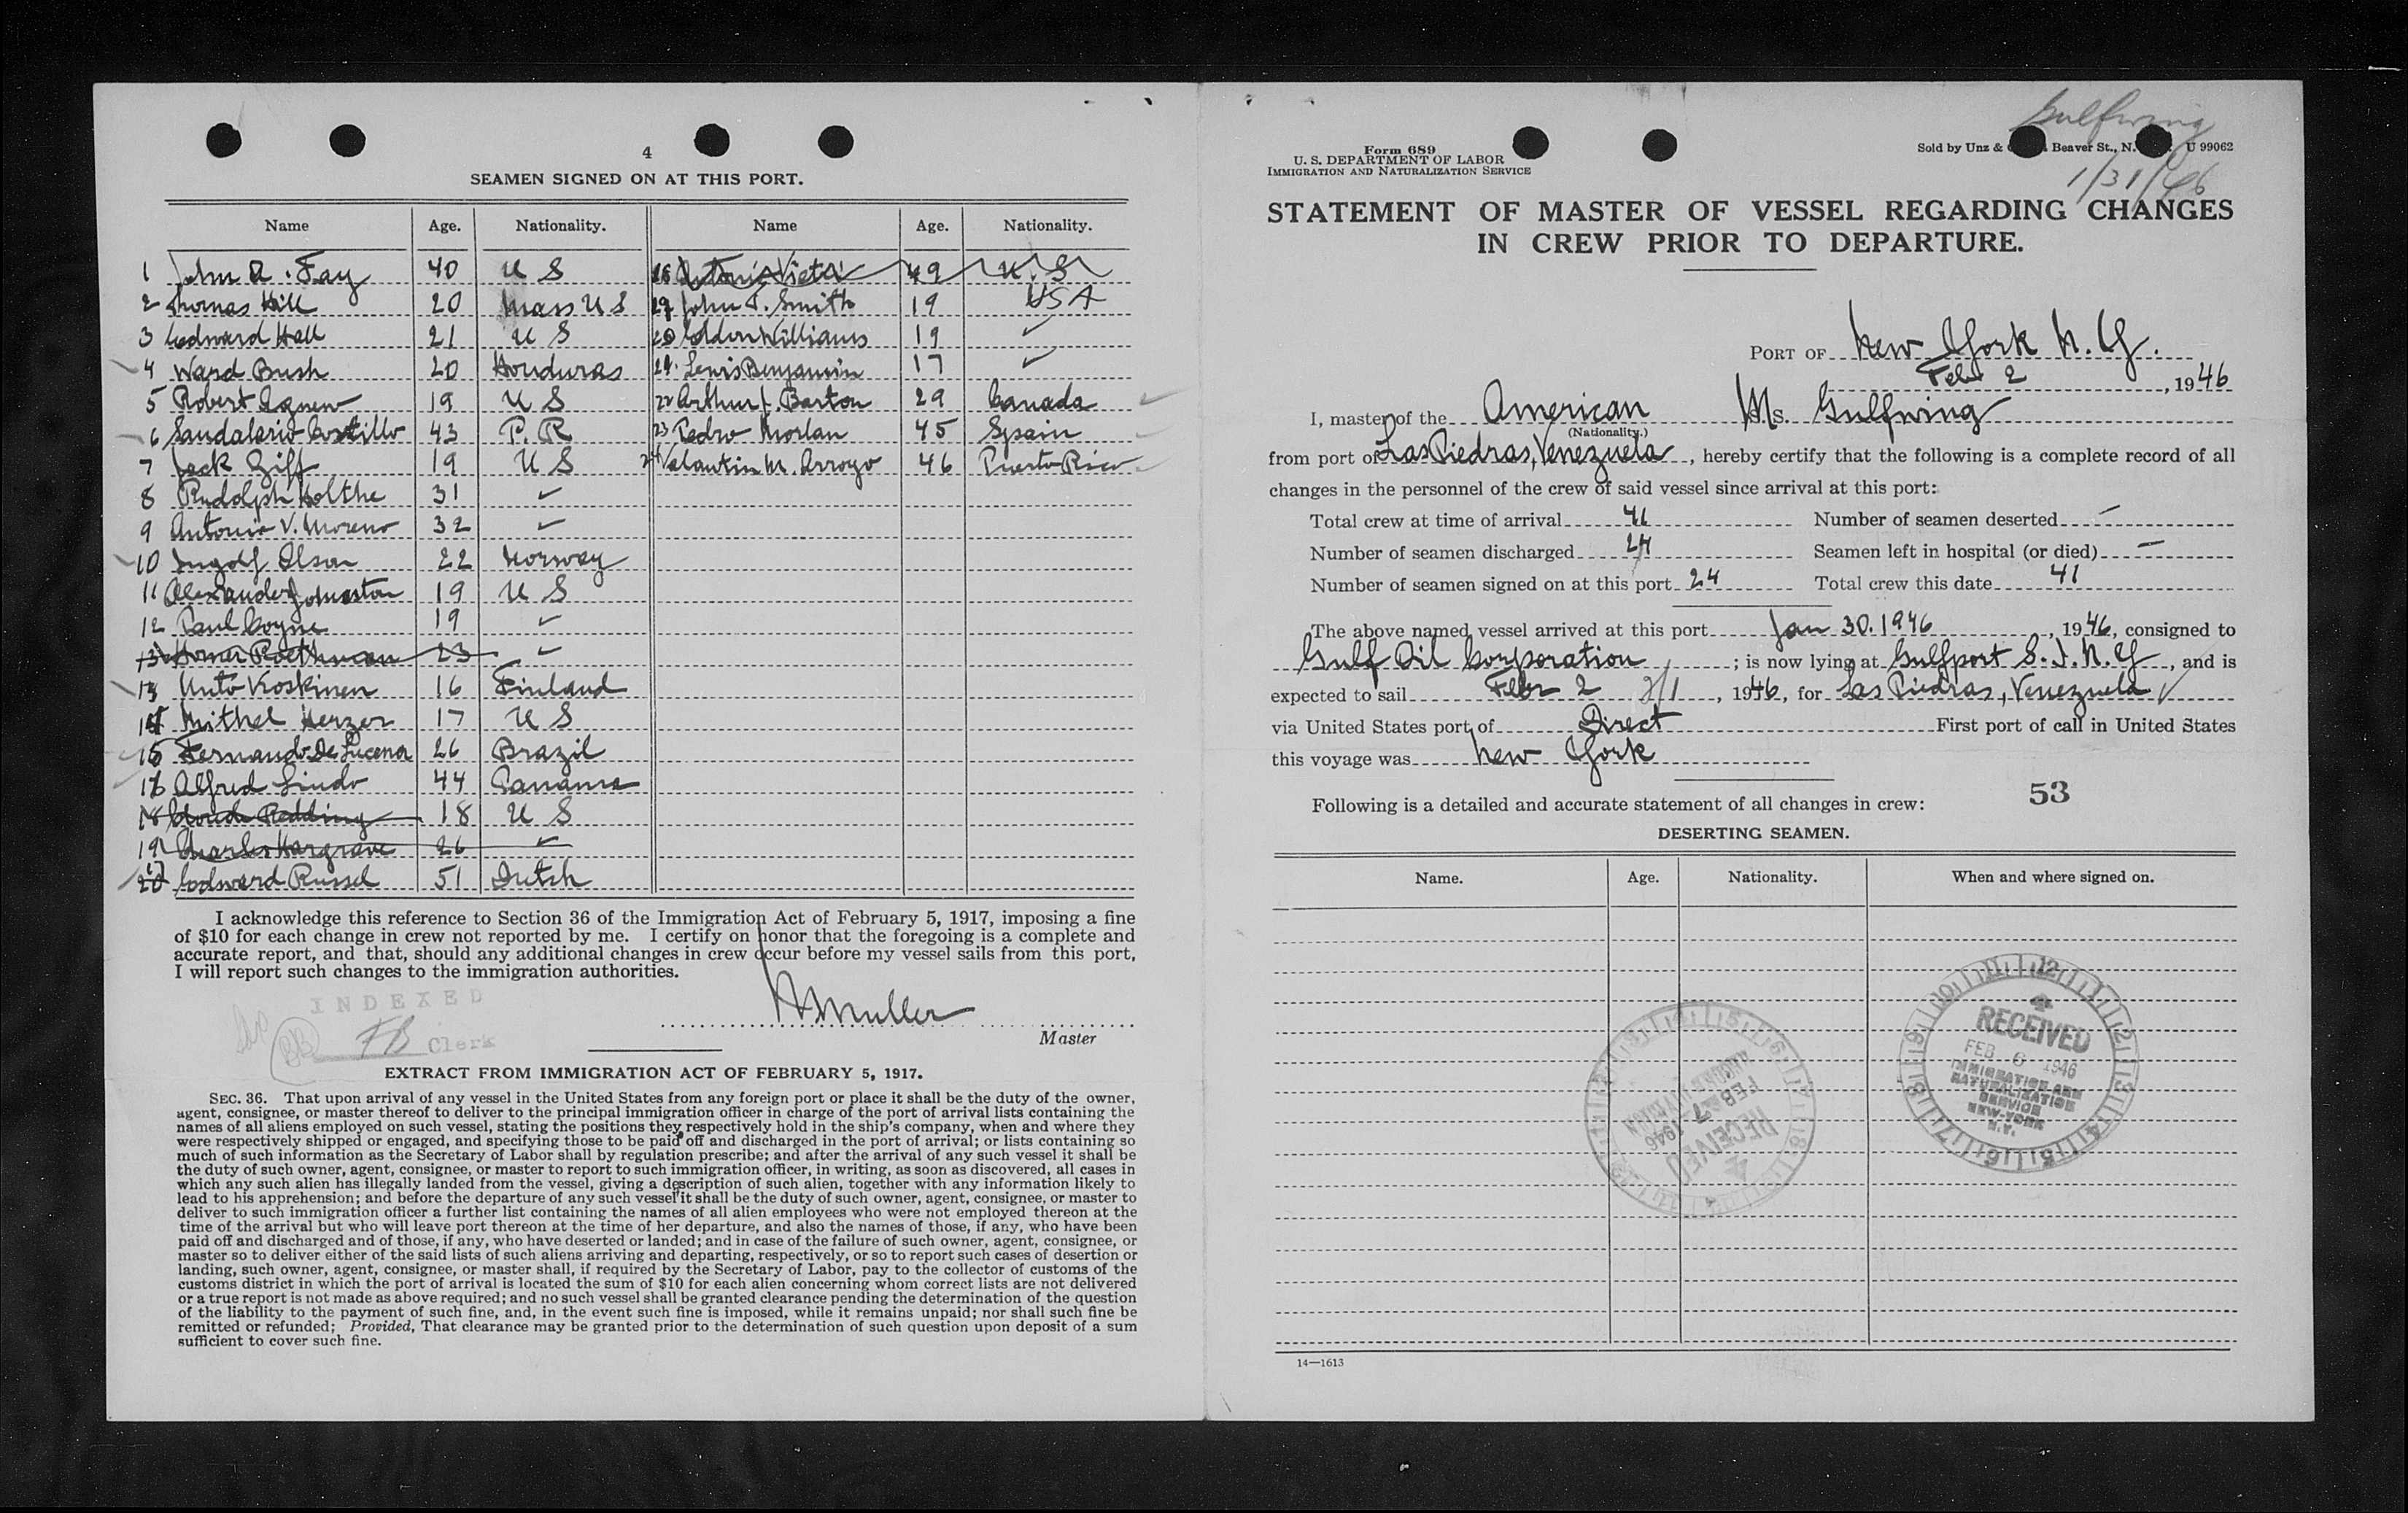 4
SEAMEN SIGNED ON AT THIS PORT.
Name Age. Nationality. Name Age. Nationality.
1 John A. Fay 40 U S
49 U.S.
2 Thomas Hill 20 Mass U S
John T. Smith 19 USA
3 Edward Hall 21 U S
Eldon Williams 19 ✓
4 Ward Bush 20 Honduras
21. Lewis Benjamin 17 ✓
5 Robert Agnew 19 U S
22 Arthur J. Barton 29 Canada
6 Sandalerio Costillo 43 P. R
23 Pedro Morlan 45 Spain
7 Jack Ziff 19 U S
24 Valantin M. Arroyo 46 Puerto Rico
8 Rudolph Holthe 31 ✓
9 Antonio V. Moreno 32 ✓
10 Ingolf Olson 22 Norway
11 Alexander Johnston 19 U S
12 Paul Coyne 19 ✓
13 Homer Roethman 23 ✓
13 Unto Koskinen 16 Finland
14 Mithel Herzer 17 U S
15 Fernando De Lucena 26 Brazil
16 Alfred Lindo 44 Panama
18 Claude Redding 18 U S
19 Charles Hargrave 26 ✓
20 Edward Russel 51 Dutch
I acknowledge this reference to Section 36 of the Immigration Act of February 5, 1917, imposing a fine
of $10 for each change in crew not reported by me. I certify on honor that the foregoing is a complete and
accurate report, and that, should any additional changes in crew occur before my vessel sails from this port,
I will report such changes to the immigration authorities.
INDEXED
BB FB Clerk
Muller
Master
EXTRACT FROM IMMIGRATION ACT OF FEBRUARY 5, 1917.
SEC. 36. That upon arrival of any vessel in the United States from any foreign port or place it shall be the duty of the owner,
agent, consignee, or master thereof to deliver to the principal immigration officer in charge of the port of arrival lists containing the
names of all aliens employed on such vessel, stating the positions they respectively hold in the ship's company, when and where they
were respectively shipped or engaged, and specifying those to be paid off and discharged in the port of arrival; or lists containing so
much of such information as the Secretary of Labor shall by regulation prescribe; and after the arrival of any such vessel it shall be
the duty of such owner, agent, consignee, or master to report to such immigration officer, in writing, as soon as discovered, all cases in
which any such alien has illegally landed from the vessel, giving a description of such alien, together with any information likely to
lead to his apprehension; and before the departure of any such vessel it shall be the duty of such owner, agent, consignee, or master to
deliver to such immigration officer a further list containing the names of all alien employees who were not employed thereon at the
time of the arrival but who will leave port thereon at the time of her departure, and also the names of those, if any, who have been
paid off and discharged and of those, if any, who have deserted or landed; and in case of the failure of such owner, agent, consignee, or
master so to deliver either of the said lists of such aliens arriving and departing, respectively, or so to report such cases of desertion or
landing, such owner, agent, consignee, or master shall, if required by the Secretary of Labor, pay to the collector of customs of the
customs district in which the port of arrival is located the sum of $10 for each alien concerning whom correct lists are not delivered
or a true report is not made as above required; and no such vessel shall be granted clearance pending the determination of the question
of the liability to the payment of such fine, and, in the event such fine is imposed, while it remains unpaid; nor shall such fine be
remitted or refunded; Provided, That clearance may be granted prior to the determination of such question upon deposit of a sum
sufficient to cover such fine.
Gulfwing
1/31/46
Form 689
U. S. DEPARTMENT OF LABOR
IMMIGRATION AND NATURALIZATION SERVICE
Sold by Unz & Beaver St., N. U 99062
STATEMENT OF MASTER OF VESSEL REGARDING CHANGES
IN CREW PRIOR TO DEPARTURE.
PORT OF New York N. Y.
Feb 2, 1946
I, master of the American Ms. Gulfwing
(Nationality.)
from port of Las Piedras, Venezuela, hereby certify that the following is a complete record of all
changes in the personnel of the crew of said vessel since arrival at this port:
Total crew at time of arrival 41 Number of seamen deserted —
Number of seamen discharged 24 Seamen left in hospital (or died) —
Number of seamen signed on at this port 24 Total crew this date 41
The above named vessel arrived at this port Jan 30. 1946, 1946, consigned to
Gulf Oil Corporation; is now lying at Gulfport S. I. N. Y, and is
expected to sail Febr 2 2/1, 1946, for Las Piedras, Venezuela ✓
via United States port of Direct First port of call in United States
this voyage was New York
53
Following is a detailed and accurate statement of all changes in crew:
DESERTING SEAMEN.
Name. Age. Nationality. When and where signed on.
RECEIVED
FEB 6 1946
IMMIGRATION AND
NATURALIZATION
SERVICE
NEW-YORK
N.Y.
RECEIVED
FEB 7 1946
14—1613